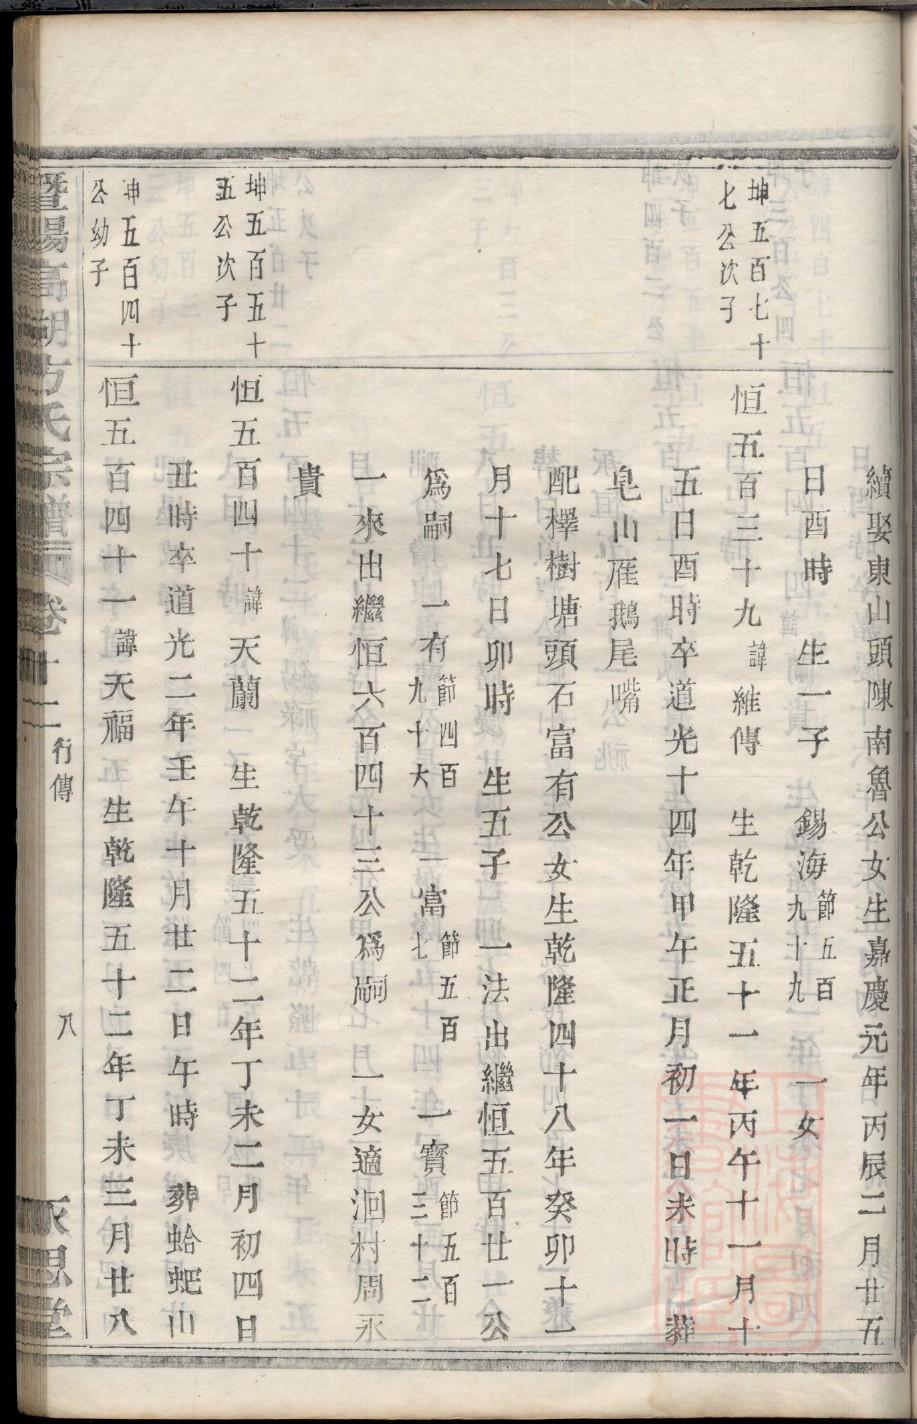 續娶東山頭陳南魯公女生嘉慶元年丙辰二月廿五
日酉時　生一子　錫海節五百九十九　一女
坤五百七十七公次子
恒五百三十九諱維傳　生乾隆五十一年丙午十一月十
五日酉時卒道光十四年甲午正月初一日未時葬
皂山雁鵝尾嘴
配檡樹塘頭石富有公女生乾隆四十八年癸卯十一
月十七日卯時　生五子　一法出繼恒五百廿一公
為嗣　一有節四百九十六　一富節五百七　一寶節五百三十二
一來出繼恒六百四十三公為嗣　一女適洄村周永
貴
坤五百五十五公次子
恒五百四十諱天蘭　生乾隆五十二年丁未二月初四日
丑時卒道光二年壬午十月廿二日午時　葬蛤蚆山
坤五百四十公幼子
恒五百四十一諱天福　生乾隆五十二年丁未三月廿八
暨陽高湖方氏宗譜　卷十二　行傳　八　永思堂